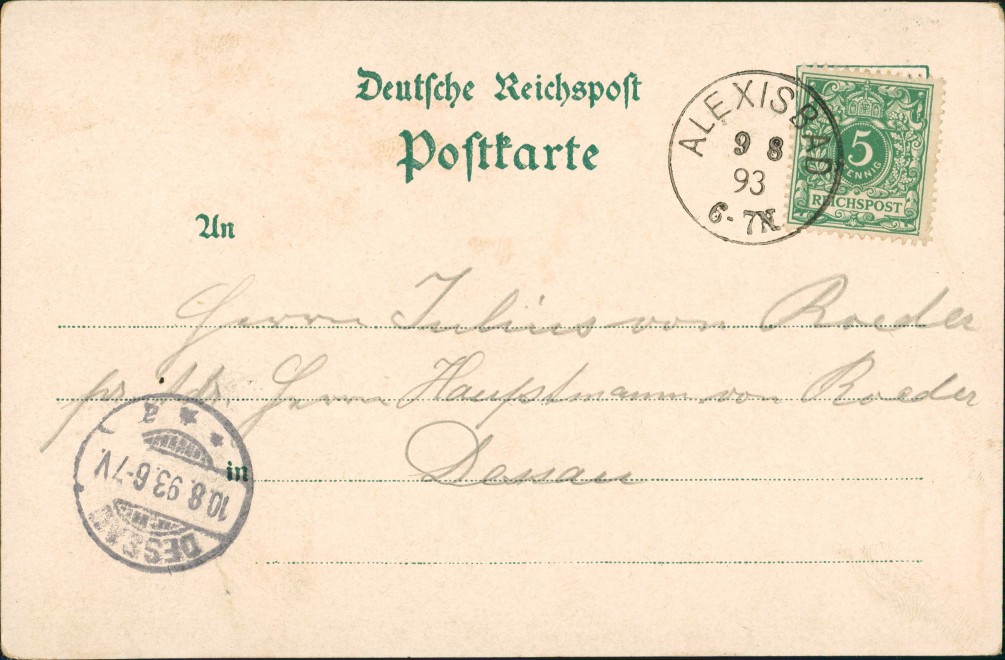 Deutsche Reichspost
Postkarte
ALEXISBAD
9 8
93
6-7N.
5
PFENNIG
REICHSPOST
An
Herrn Julius von Roeder
pr. Adr. Herrn Hauptmann von Roeder
in Dessau
DESSAU
10.8.93.6-7V.
* a *